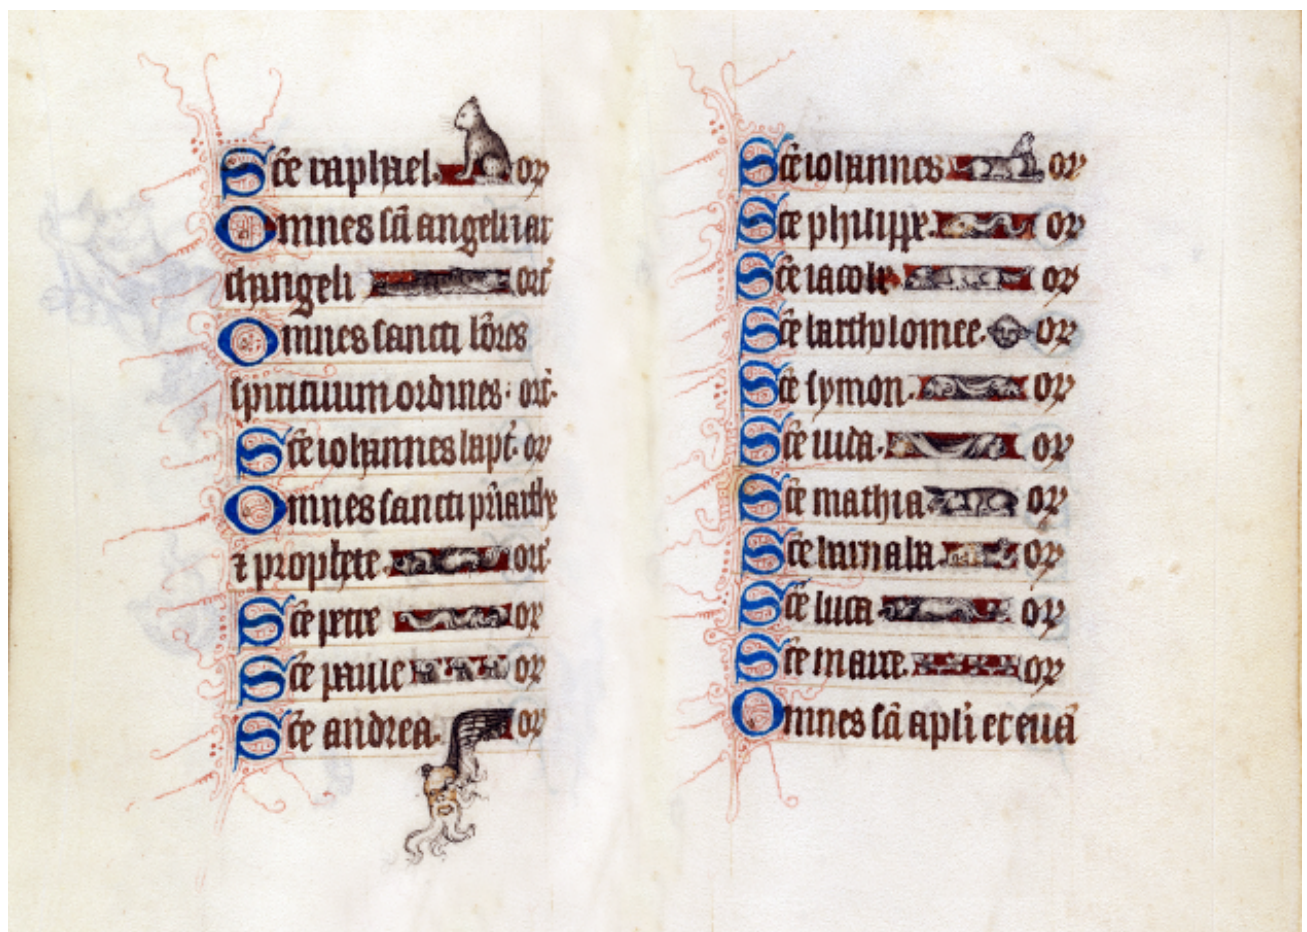 Sce raphael. or
Omnes sci angeli et ar
changeli orate
Omnes sancti bōres
spirituum ordines. orat.
Sce iohannes bapt. or
Omnes sancti pr̄iarche
⁊ prophete orat.
Sce petre or
Sce paule or
Sce andrea. or
Sce iohannes or
Sce philippe. or
Sce iacobe or
Sce bartholomee. or
Sce symon. or
Sce iuda. or
Sce mathia or
Sce barnaba. or
Sce luca or
Sce marce. or
Omnes sci apli et euā